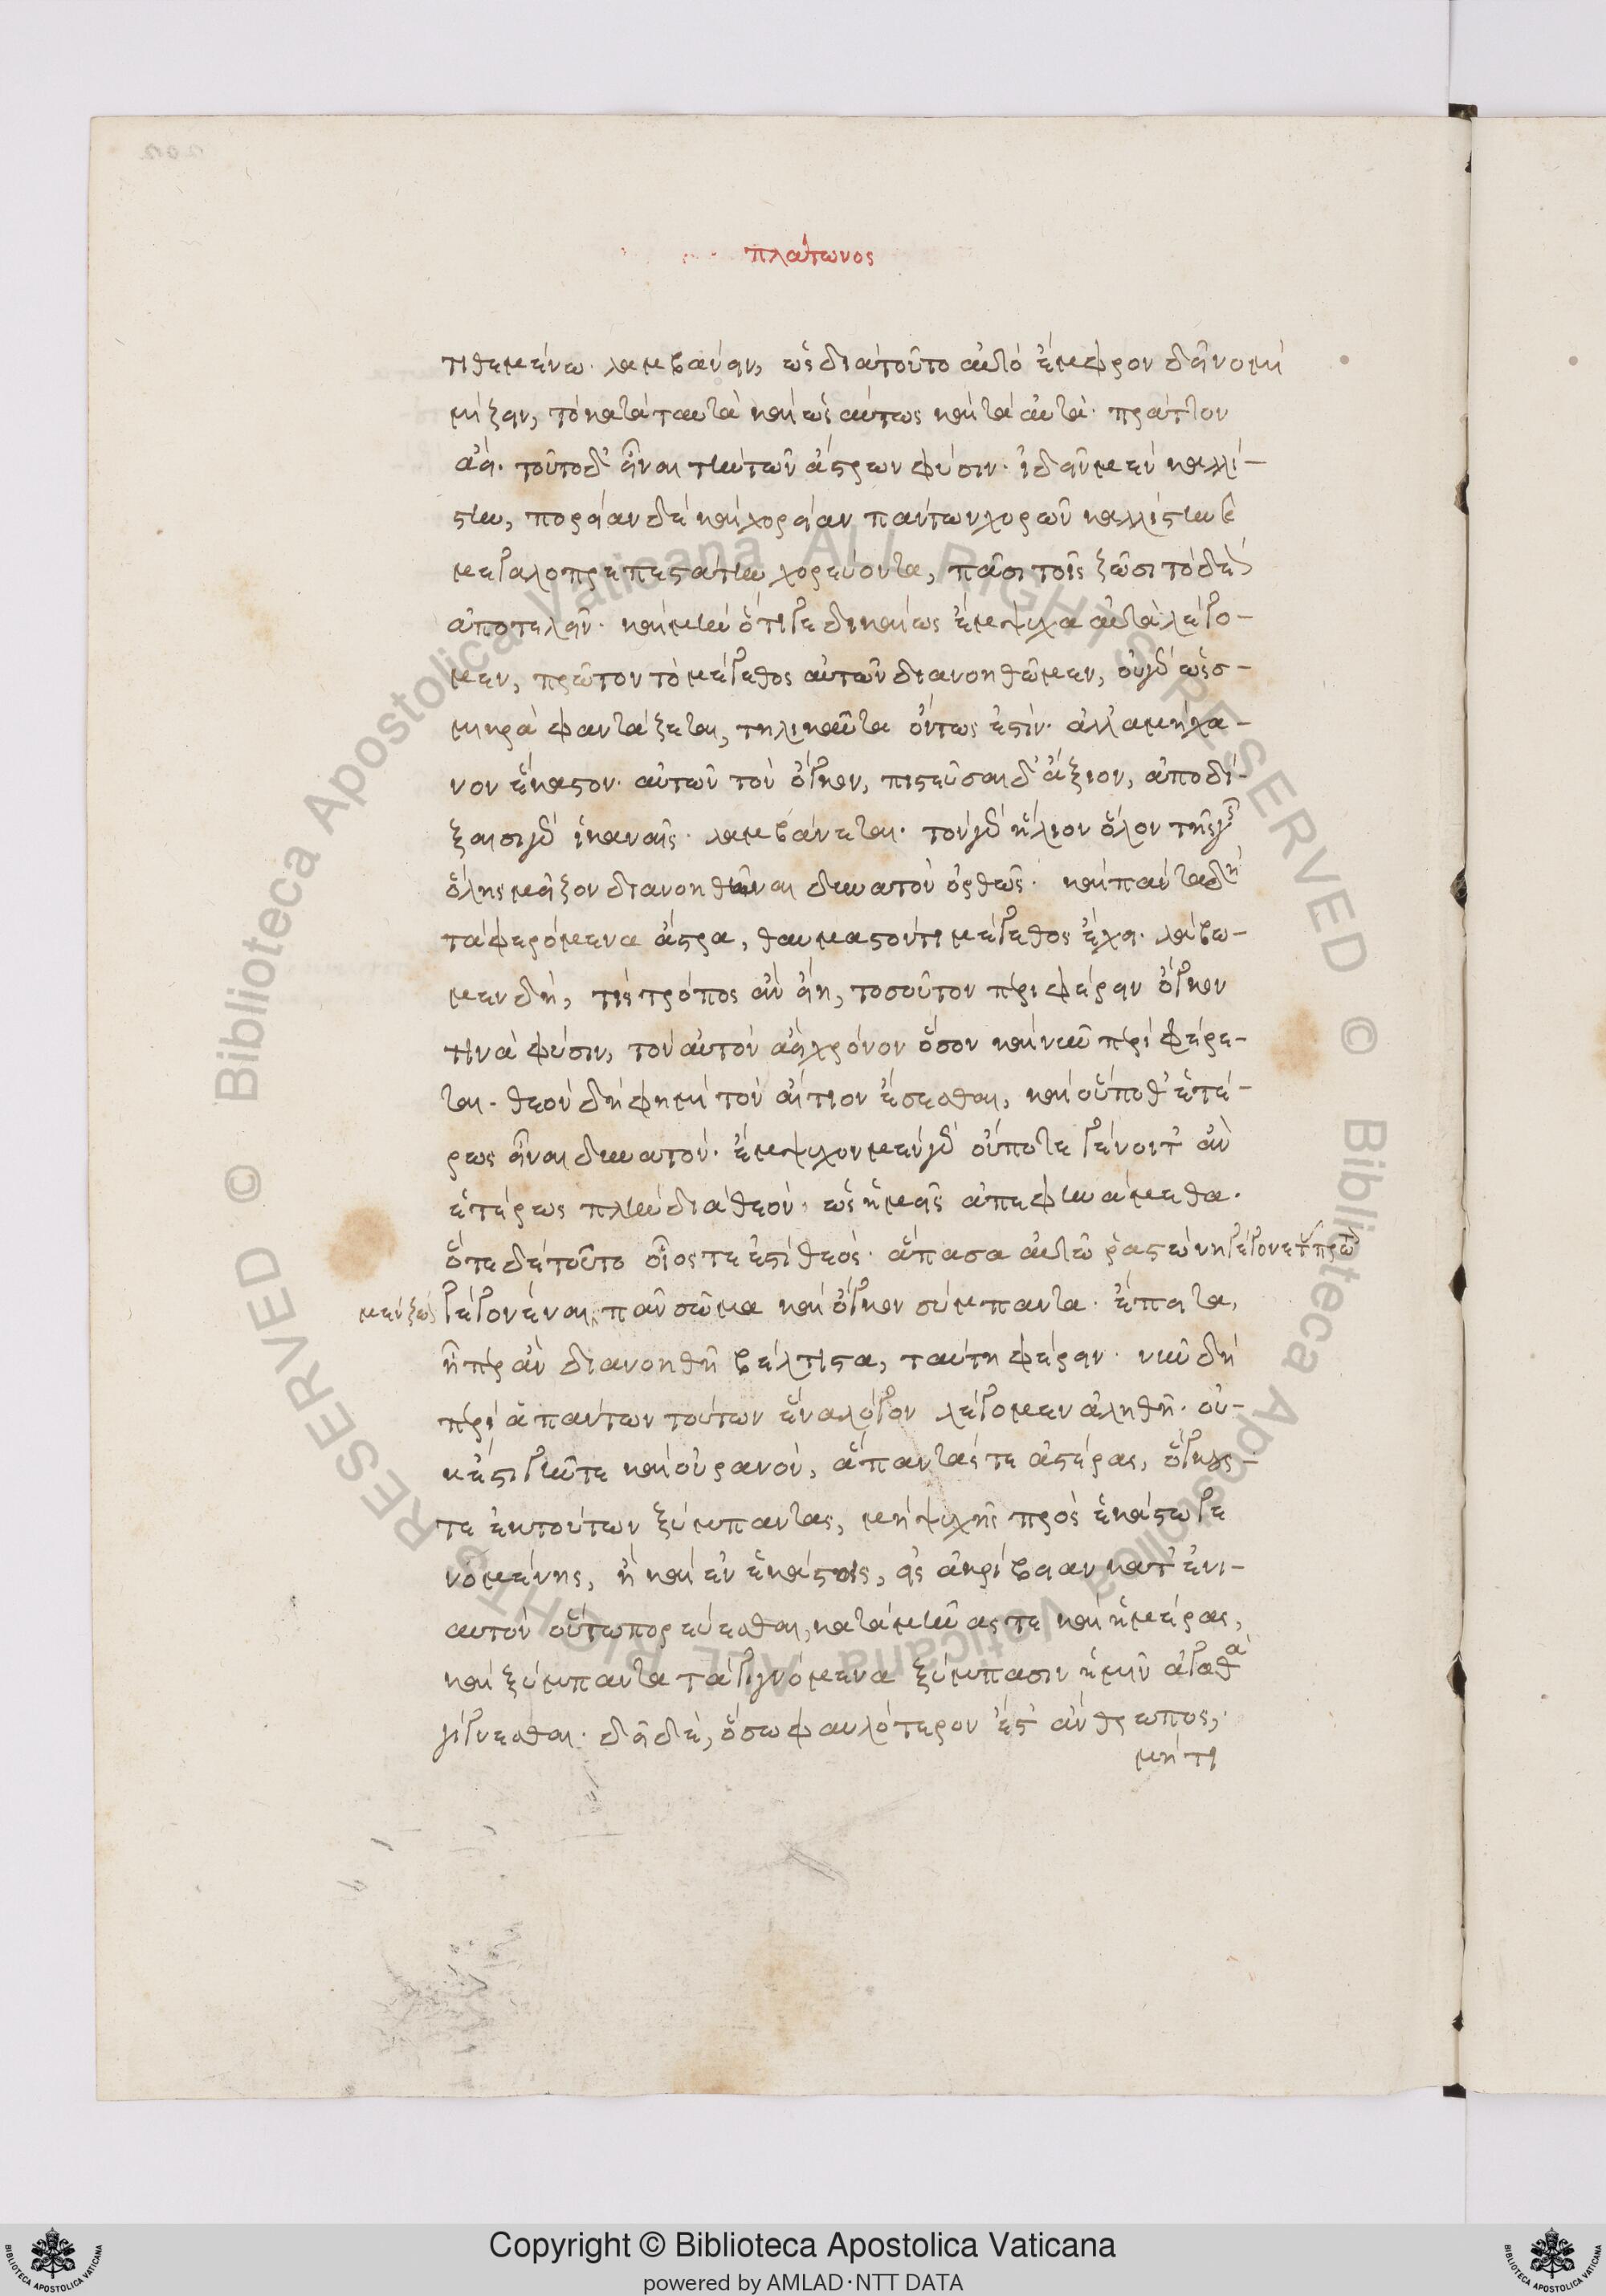 πλάτωνος
τιθεμένω· λαμβάνειν, ὡς διατοῦτο αὐτὸ ἔμφρον δεῖ νομί
μίζειν, τὸ κατὰ ταυτὰ καὶ ὡσαύτως καὶ τὰ αὐτὰ· πράττον
ἀεί· τοῦτο δ' εἶναι τὴν τῶν ἄστρων φύσιν· ἰδεῖν μὲν καλλί-
στην, πορείαν δὲ καὶ χορείαν πάντων χορῶν καλλίστην καὶ
μεγαλοπρεπεστάτην χορεύοντα, πᾶσι τοῖς ζῶσι τὸ δέον
ἀποτελεῖν· καὶ μὴν ὅτι γε δικαίως ἔμψυχα αὐτὰ λέγο-
μεν, πρῶτον τὸ μέγεθος αὐτῶν διανοηθῶμεν, οὐ γὰρ ὡς σ-
μικρὰ φαντάζεται, τηλικαῦτα ὄντως ἐστίν· ἀλλ' ἀμήχα-
νον ἕκαστον· αὐτῶν τὸν ὄγκον, πιστεῦσαι δ' ἄξιον, ἀποδεί-
ξεσι γὰρ ἱκαναῖς· λαμβάνεται· τὸν γὰρ ἥλιον ὅλον τῆς γῆς
ὅλης μεῖζον διανοηθῆναι δυνατὸν ὀρθῶς· καὶ πάντα δὴ
τὰ φερόμενα ἄστρα, θαυμαστόν τι μέγεθος ἔχει· λάβω-
μεν δὴ, τίς τρόπος ἂν εἴη, τοσοῦτον περιφέρειν ὄγκον
τινὰ φύσιν, τὸν αὐτὸν ἀεὶ χρόνον ὅσον καὶ νῦν περιφέρε-
ται· θεὸν δή φημι τὸν αἴτιον ἔσεσθαι, καὶ οὔποθ' ἑτέ-
ρως εἶναι δυνατόν· ἔμψυχον μὲν γὰρ οὔποτε γένοιτ' ἂν
ἑτέρως πλὴν διὰ θεόν· ὡς ἡμεῖς ἀπεφηνάμεθα·
ὅτε δὲ τοῦτο οἷός τε ἐστὶ θεός· ἅπασα αὐτῷ ῥᾳστώνη γέγονε τοῦ πρῶτον
μὲν ζῷον γεγονέναι πᾶν σῶμα καὶ ὄγκον σύμπαντα· ἔπειτα,
ᾗπερ ἂν διανοηθῇ βέλτιστα, ταύτῃ φέρειν· νῦν δὴ
περὶ ἁπάντων τούτων ἕνα λόγον λέγοιμεν ἀληθῆ· οὐ-
κ ἔστι γῆν τε καὶ οὐρανὸν, ἅπαντάς τε ἀστέρας, ὄγκους-
τε ἐκ τούτων ξύμπαντας, μὴ ψυχῆς πρὸς ἑκάστῳ γε
νομένης, ἢ καὶ ἐν ἑκάστοις, εἰς ἀκρίβειαν κατ' ἐνι-
αυτὸν οὕτω πορεύεσθαι, κατὰ μῆνας τε καὶ ἡμέρας,
καὶ ξύμπαντα τὰ γιγνόμενα ξύμπασιν ἡμῖν ἀγαθὰ
γίγνεσθαι· δεῖ δὲ, ὅσῳ φαυλότερον ἔστ' ἄνθρωπος,·
μή τι
Copyright © Biblioteca Apostolica Vaticana
powered by AMLAD·NTT DATA